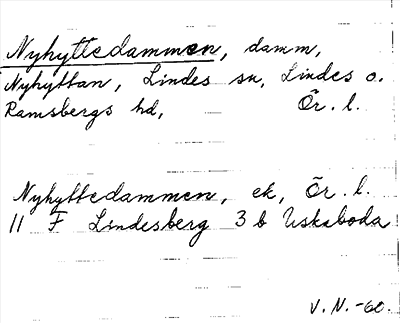 Nyhyttedammen, damm,
Nyhyttan, Lindes sn, Lindes o.
Ramsbergs hd, Ör. l.
Nyhyttedammen, ek, Ör. l.
11 F Lindesberg 3 b Uskaboda
V. N. -60.